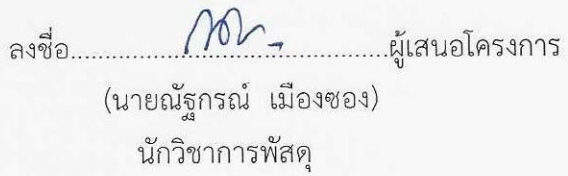 ลงชื่อ................................................ผู้เสนอโครงการ
(นายณัฐกรณ์ เมืองซอง)
นักวิชาการพัสดุ